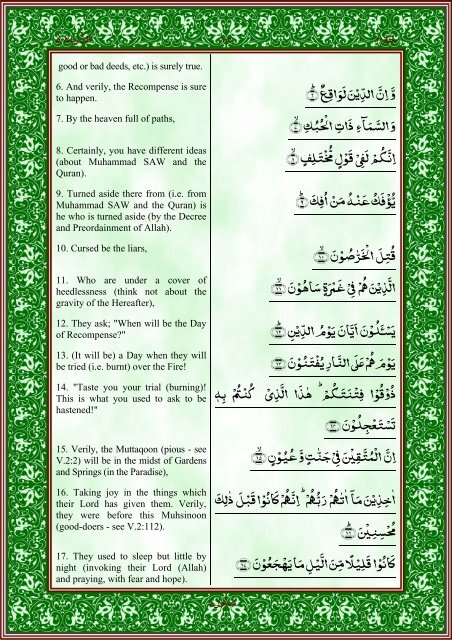 good or bad deeds, etc.) is surely true.
6. And verily, the Recompense is sure
to happen.
وَّ اِنَّ الدِّيْنَ لَوَاقِعٌ ؕ﴿۶﴾
7. By the heaven full of paths,
وَالسَّمَآءِ ذَاتِ الْحُبُكِ ۙ﴿۷﴾
8. Certainly, you have different ideas
(about Muhammad SAW and the
Quran).
اِنَّكُمْ لَفِيْ قَوْلٍ مُّخْتَلِفٍ ۙ﴿۸﴾
9. Turned aside there from (i.e. from
Muhammad SAW and the Quran) is
he who is turned aside (by the Decree
and Preordainment of Allah).
يُّؤْفَكُ عَنْهُ مَنْ اُفِكَ ؕ﴿۹﴾
10. Cursed be the liars,
قُتِلَ الْخَرّٰصُوْنَ ۙ﴿۱۰﴾
11. Who are under a cover of
heedlessness (think not about the
gravity of the Hereafter),
الَّذِيْنَ هُمْ فِيْ غَمْرَةٍ سَاهُوْنَ ۙ﴿۱۱﴾
12. They ask; "When will be the Day
of Recompense?"
يَسْـَٔلُوْنَ اَيَّانَ يَوْمُ الدِّيْنِ ؕ﴿۱۲﴾
13. (It will be) a Day when they will
be tried (i.e. burnt) over the Fire!
يَوْمَ هُمْ عَلَى النَّارِ يُفْتَنُوْنَ ﴿۱۳﴾
14. "Taste you your trial (burning)!
This is what you used to ask to be
hastened!"
ذُوْقُوْا فِتْنَتَكُمْ ؕ هٰذَا الَّذِيْ كُنْتُمْ بِهٖ
تَسْتَعْجِلُوْنَ ﴿۱۴﴾
15. Verily, the Muttaqoon (pious - see
V.2:2) will be in the midst of Gardens
and Springs (in the Paradise),
اِنَّ الْمُتَّقِيْنَ فِيْ جَنّٰتٍ وَّ عُيُوْنٍ ۙ﴿۱۵﴾
16. Taking joy in the things which
their Lord has given them. Verily,
they were before this Muhsinoon
(good-doers - see V.2:112).
اٰخِذِيْنَ مَاۤ اٰتٰىهُمْ رَبُّهُمْ ؕ اِنَّهُمْ كَانُوْا قَبْلَ ذٰلِكَ
مُحْسِنِيْنَ ؕ﴿۱۶﴾
17. They used to sleep but little by
night (invoking their Lord (Allah)
and praying, with fear and hope).
كَانُوْا قَلِيْلًا مِّنَ الَّيْلِ مَا يَهْجَعُوْنَ ﴿۱۷﴾